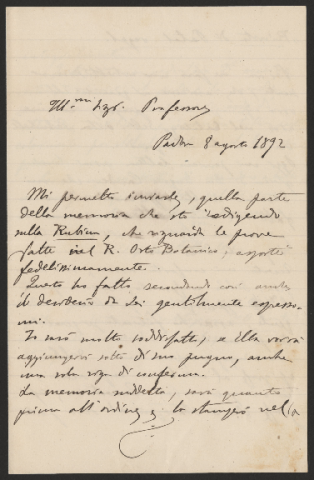 Ill.mo Sigr. Professore
Padova 8 agosto 1892
Mi permetto inviarle, quella parte
della memoria che sto redigendo
sulla Rubina, che riguarda le prove
fatte nel R. Orto Botanico, esposte
fedelissimamente.
Questo ho fatto secondando così anche
il desiderio da Lei gentilmente espresso
mi.
Io sarò molto soddisfatto, se Ella vorrà
aggiungervi sotto di suo pugno, anche
una sola riga di conferma.
La memoria suddetta, sarà quanto
prima all'ordine e la stamperò nella